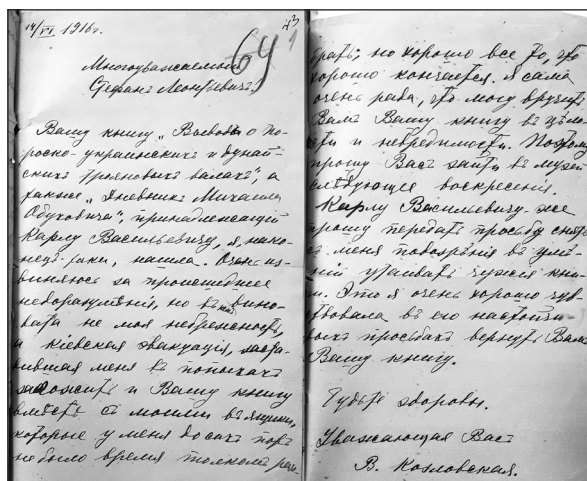 14/VI. 1916 г.
64
Многоуважаемый
Стефан Леонтьевич!
Вашу книгу „Выводы о по-
росско-украинских и дунай-
ских трояновых валах", а
также „Дневник Михаила
Обуховича", принадлежащий
Карлу Васильевичу, я, нако-
нец-таки, нашла. Очень из-
виняюсь за происшедшее
недоразуменiе, но в нем вино-
вата не моя небрежность,
а кiевская эвакуацiя, заста-
вившая меня в попыхах
заложить и Вашу книгу
вместе с моими в ящики,
которые у меня до сих пор
не было время толком разо-
брать; но хорошо все то, что
хорошо кончается. Я сама
очень рада, что могу вручить
Вам Вашу книгу в цело-
сти и невредимости. Поэтому
прошу Вас зайти в музей
следующее воскресенiе.
Карлу Васильевичу-же
прошу передать просьбу снять
с меня подозренiя в уме-
нiй утаивать чужiя кни-
ги. Это я очень хорошо чув-
ствовала в его настойчи-
вых просьбах вернуть Вам
Вашу книгу.
Будьте здоровы.
Уважающая Васъ
В. Козловская.